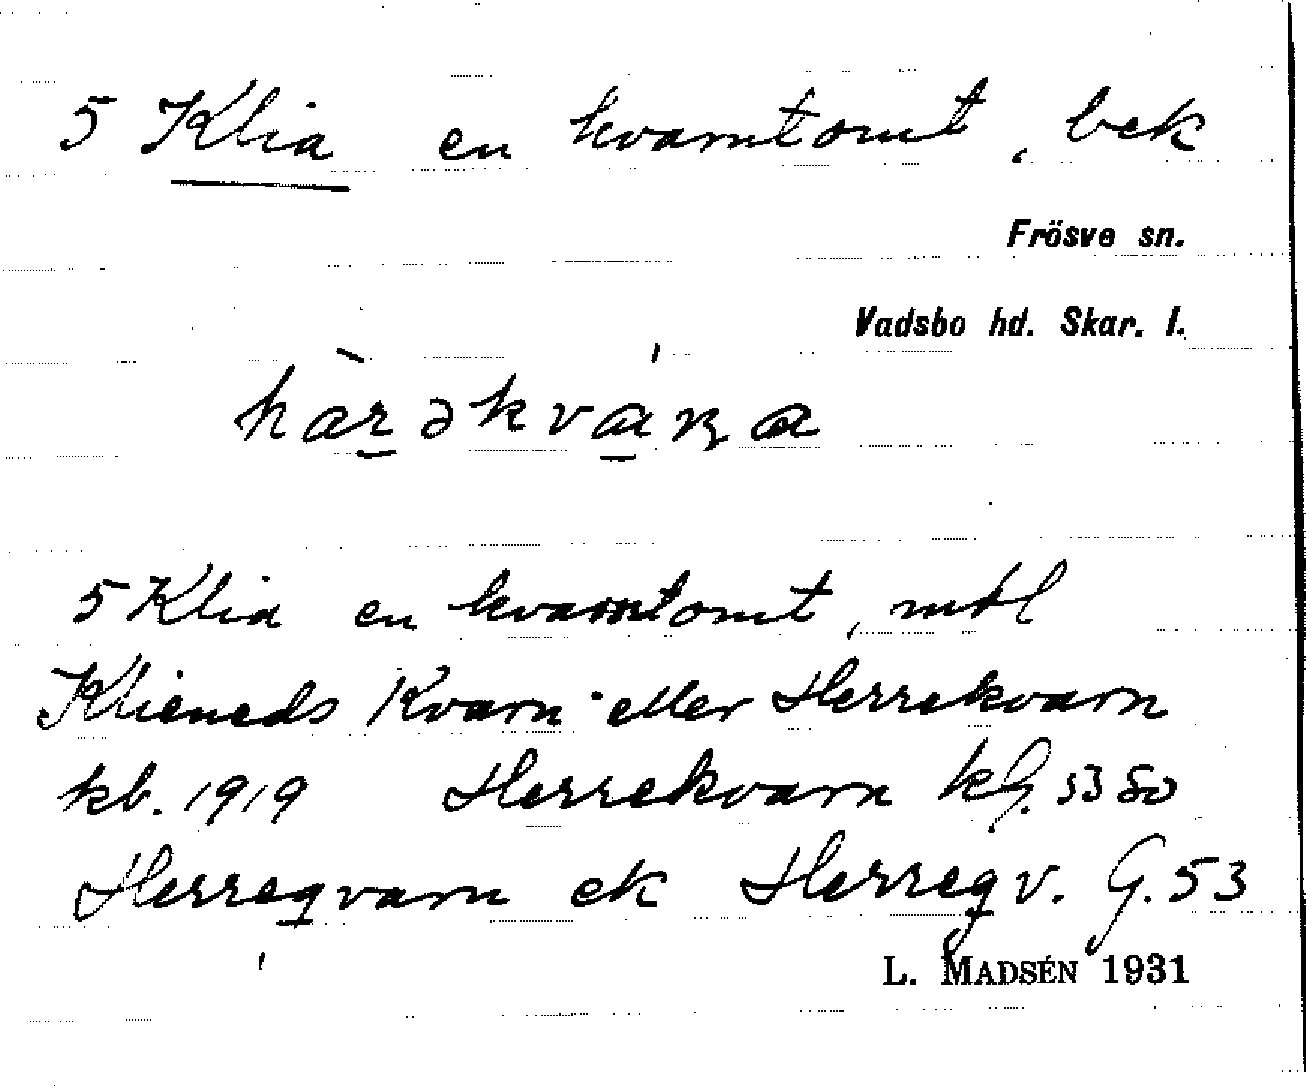 5 Klia en kvarntomt, bek
Frösve sn.
Vadsbo hd. Skar. l.
5 Klia en kvarntomt, mtl
Klieneds Kvarn eller Herrekvarn
kb. 1919 Herrekvarn kG. 53 80
Herreqvarn ek Herreqv. G. 53
L. MADSÉN 1931